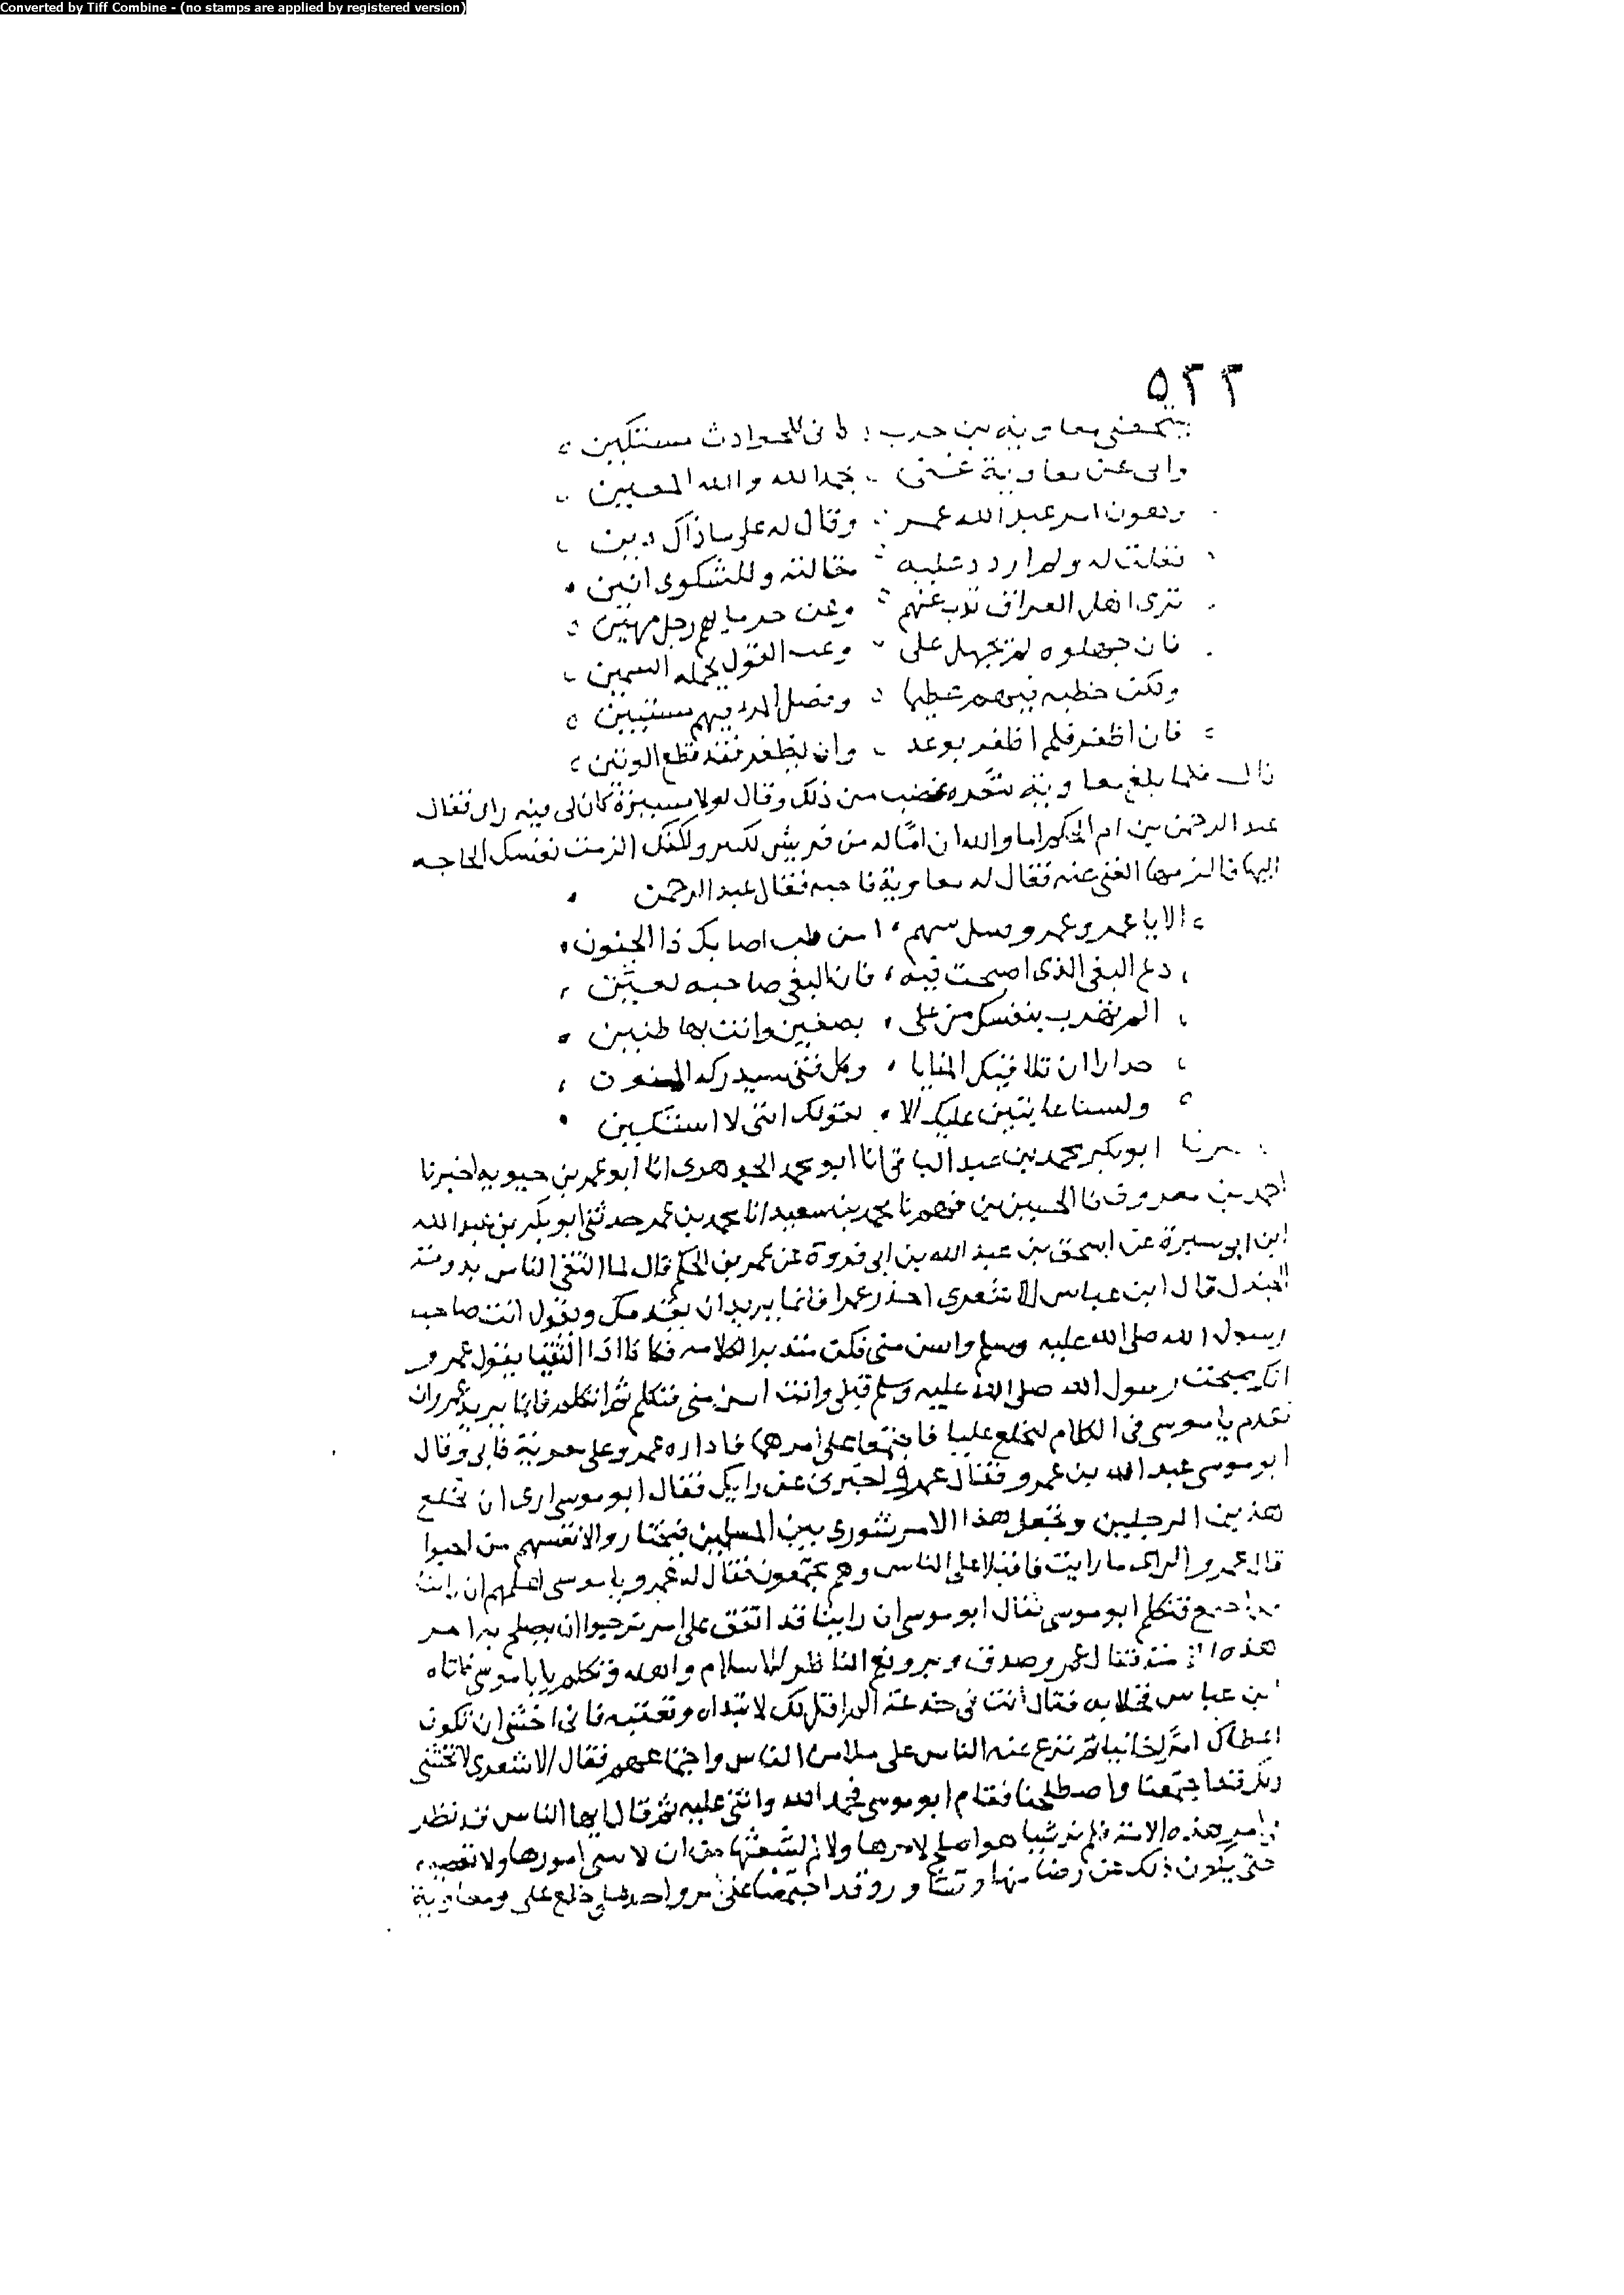 Converted by Tiff Combine - (no stamps are applied by registered version)
٥٣٣
معاوية بن حرب كانى للحوادث مستكين
وانى عن معاوية غنى بحمد الله والله المعين
وهون امر عبد الله عمرو وقال له على ما ذاك دين
فقلت له ولم اردد عليه مقالته وللشكوى انين
ترى اهل العراق تذب عنهم وعن جرمانهم رجل مهين
فان جهلوه لم يجهل على وغب القول يحمله السمين
ولكن خطبه فيهم عظيم وفضل المرء فيهم مستبين
فان اظفر فلم اظفر بوغد وان يظفر فقد قطع الوتين
قال فلما بلغ معاوية شعره غضب من ذلك وقال لولا مسيره كان لى فيه راى فقال
عبد الرحمن بن ام الحكم اما والله ان امثاله من قريش لكثير ولكنك الزمت نفسك الحاجه
اليها فالزمها الغنى عنه فقال له معاوية فاجبه فقال عبد الرحمن
الا يا عمرو عمرو نسل سهم امن طب اصابك ذا الجنون
دع البغى الذى اصبحت فيه فان البغى صاحبه لعين
الم تهرب بنفسك من على بصفين وانت بها ظنين
حذارا ان تلاقيك المنايا وكل فتى سيدركه المنون
ولسنا عايبين عليك الا لقولك اننى لا استكين
ابو بكر محمد بن عبد الباقى انا ابو محمد الجوهرى انا ابو عمر بن حيويه اخبرنا
احمد بن معروف نا الحسين بن فهم نا محمد بن سعيد انا محمد بن عمر حدثنى ابو بكر بن عبد الله
ابن ابى سبرة عن اسحق بن عبد الله بن ابى فروة عن عمر بن الحكم قال لما التقى الناس بدومة
الجندل قال ابن عباس للاشعرى احذر عمرا فانما يريد ان يقدمك ويقول انت صاحب
رسول الله صلى الله عليه وسلم واسن منى فكن متدبرا لكلامه فكانا اذا التقيا يقول عمرو
انك صحبت رسول الله صلى الله عليه وسلم قبلى وانت اسن منى فتكلم ثم اتكلم فانما يريد عمرو ان
يقدم يا موسى فى الكلام ليخلع عليا فاجتمعا على امرهما فاداره عمرو على معوية فابى وقال
ابو موسى عبد الله بن عمرو فقال عمرو اخبرنى عن رايك فقال ابو موسى ارى ان نخلع
هذين الرجلين ونجعل هذا الامر شورى بين المسلمين فيختاروا لانفسهم من احبوا
قال عمرو الراى ما رايت فاقبلا على الناس وهم مجتمعون فقال له عمرو يا با موسى اعلمهم ان راينا
اجتمع فتكلم ابو موسى فقال ابو موسى ان راينا قد اتفق على امر نرجوا ان يصلح به امر
هذه الامة فقال عمرو صدق وبر ونعم الناظر للاسلام واهله فتكلم يا با موسى فاتاه
ابن عباس فخلا به فقال انت فى خدعة الم اقل لك لا تبداه وتعقبه فانى اخشى ان يكون
اعطاك امرا خاليا ثم ينزع عنه الناس على ملا من الناس واجتماعهم فقال الاشعرى لا تخشى
ذلك قد اجتمعنا واصطلحنا فقام ابو موسى فحمد الله واثنى عليه ثم قال ايها الناس قد نظرنا
فى امر هذه الامة فلم نر شيا هو اصلح لامرها ولا الم لشعثها من ان لا امورها ولا
حتى يكون ذلك عن رضا منها وتشاور وقد اجتمعنا على امر واحد على خلع على ومعاوية